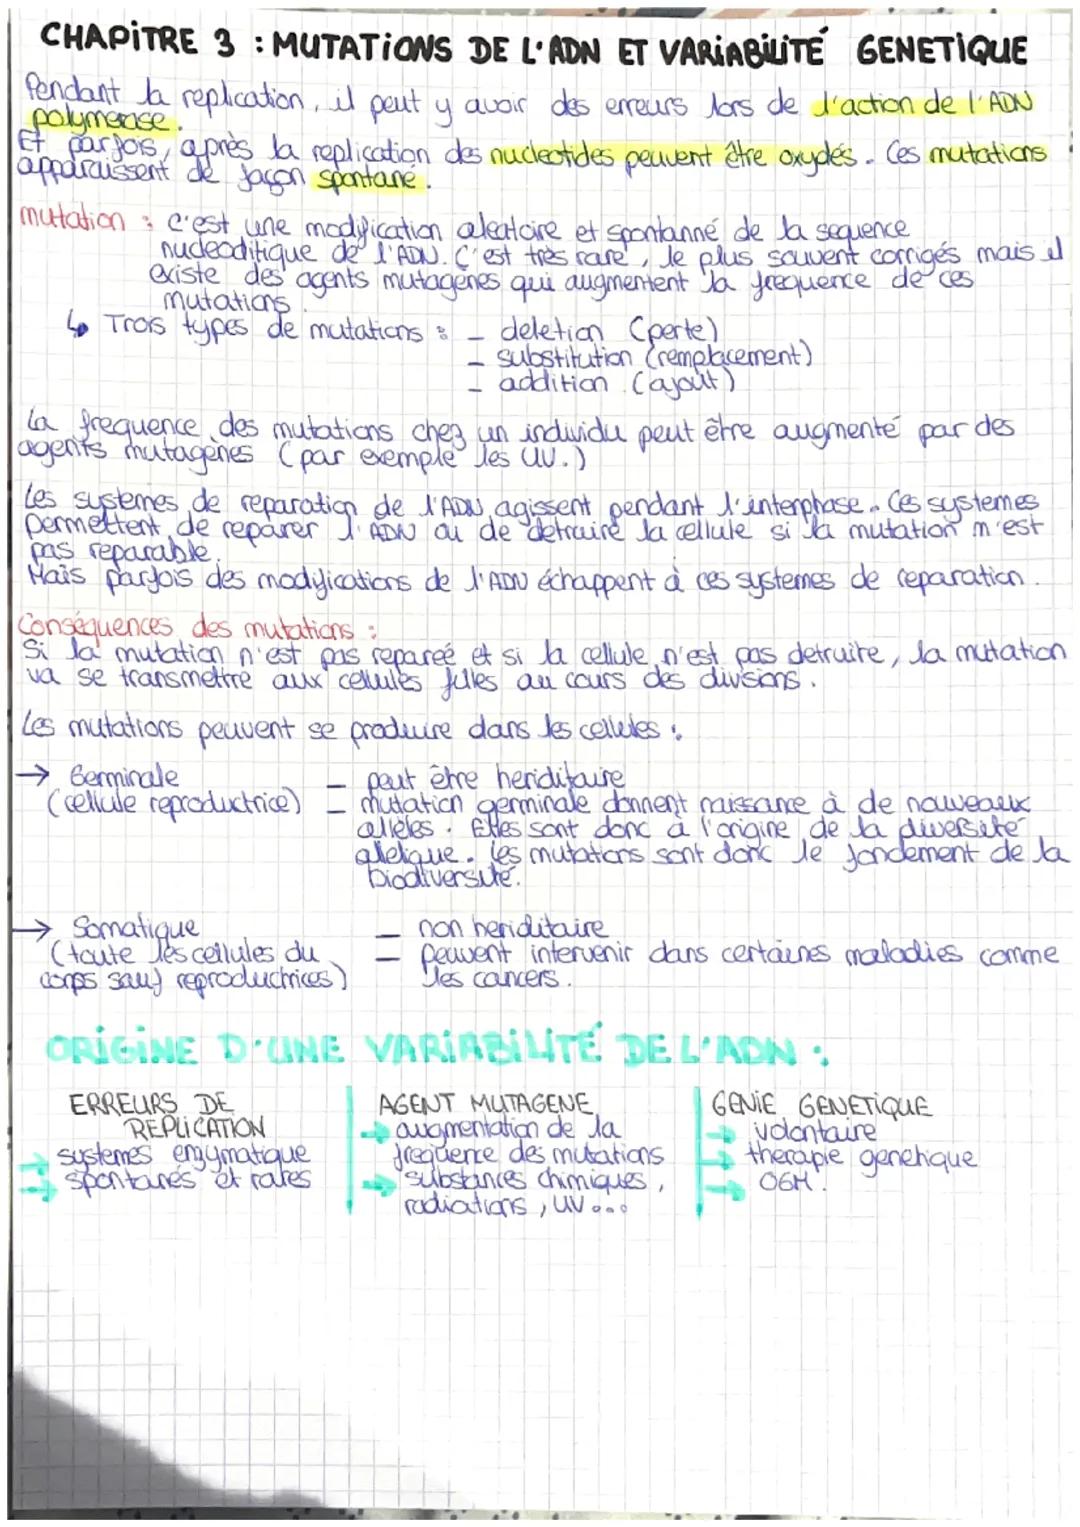 CHAPITRE 3 : MUTATIONS DE L'ADN ET VARIABILITÉ GENETIQUE
Pendant la replication, il peut y avoir des erreurs lors de l'action de l'ADN
polymerase.
Et parfois, après la replication des nucleotides peuvent être oxydés. Ces mutations
apparaissent de façon spontané.
mutation : c'est une modification aleatoire et spontanné de la sequence
nucleoditique de l'ADN. C'est très rare, le plus souvent corrigés mais il
existe des agents mutagènes qui augmentent la frequence de ces
mutations.
↳ Trois types de mutations : - deletion (perte)
- substitution (remplacement)
- addition (ajout)
La frequence des mutations chez un individu peut être augmenté par des
agents mutagènes (par exemple les UV.)
Les systemes de reparation de l'ADN agissent pendant l'interphase. Ces systemes
permettent de reparer l'ADN ou de detruire la cellule si la mutation n'est
pas reparable.
Mais parfois des modifications de l'ADN échappent à ces systemes de reparation.
Conséquences des mutations :
Si la mutation n'est pas repareé et si la cellule n'est pas detruire, la mutation
va se transmettre aux cellules filles au cours des divisions.
Les mutations peuvent se produire dans les cellules :
→ Germinale - peut être heriditaire
(cellule reproductrice) - mutation germinale donnent naissance à de nouveaux
alleles. Elles sont donc à l'origine de la diversité
allelique. Les mutations sont donc le fondement de la
biodiversité.
→ Somatique - non heriditaire
(toute les cellules du - peuvent intervenir dans certaines maladies comme
corps sauf reproductrices) les cancers.
ORIGINE D'UNE VARIABILITÉ DE L'ADN :
ERREURS DE AGENT MUTAGENE GENIE GENETIQUE
REPLICATION → augmentation de la → volontaire
→ systemes enzymatique frequence des mutations → therapie genetique
→ spontanés et rares → substances chimiques, → OGM.
radiations, UV...